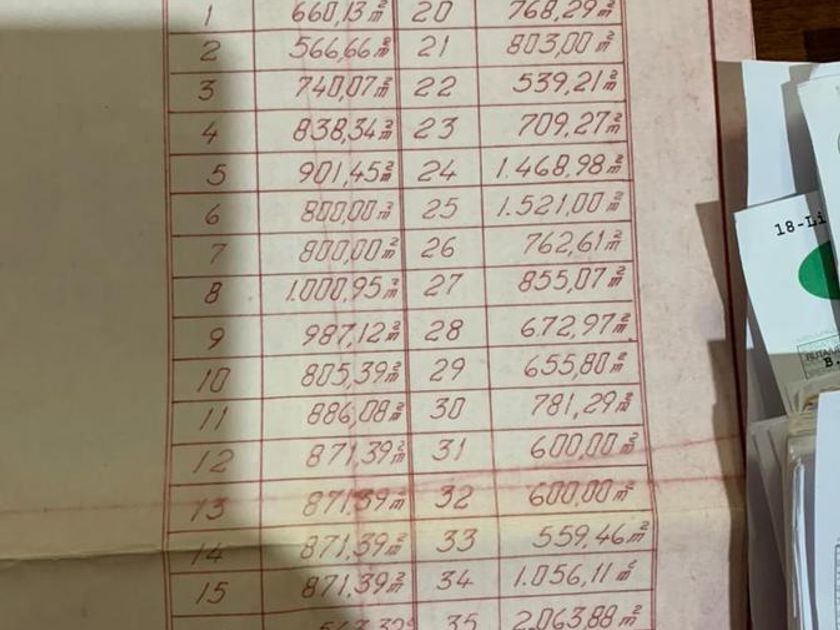 1 660,13 m² 20 768,29 m²
2 566,66 m² 21 803,00 m²
3 740,07 m² 22 539,21 m²
4 838,34 m² 23 709,27 m²
5 901,45 m² 24 1.468,98 m²
6 800,00 m² 25 1.521,00 m²
7 800,00 m² 26 762,61 m²
8 1.000,95 m² 27 855,07 m²
9 987,12 m² 28 672,97 m²
10 805,39 m² 29 655,80 m²
11 886,08 m² 30 781,29 m²
12 871,39 m² 31 600,00 m²
13 871,39 m² 32 600,00 m²
14 871,39 m² 33 559,46 m²
15 871,39 m² 34 1.056,11 m²
35 2.063,88 m²
18-Li
B.